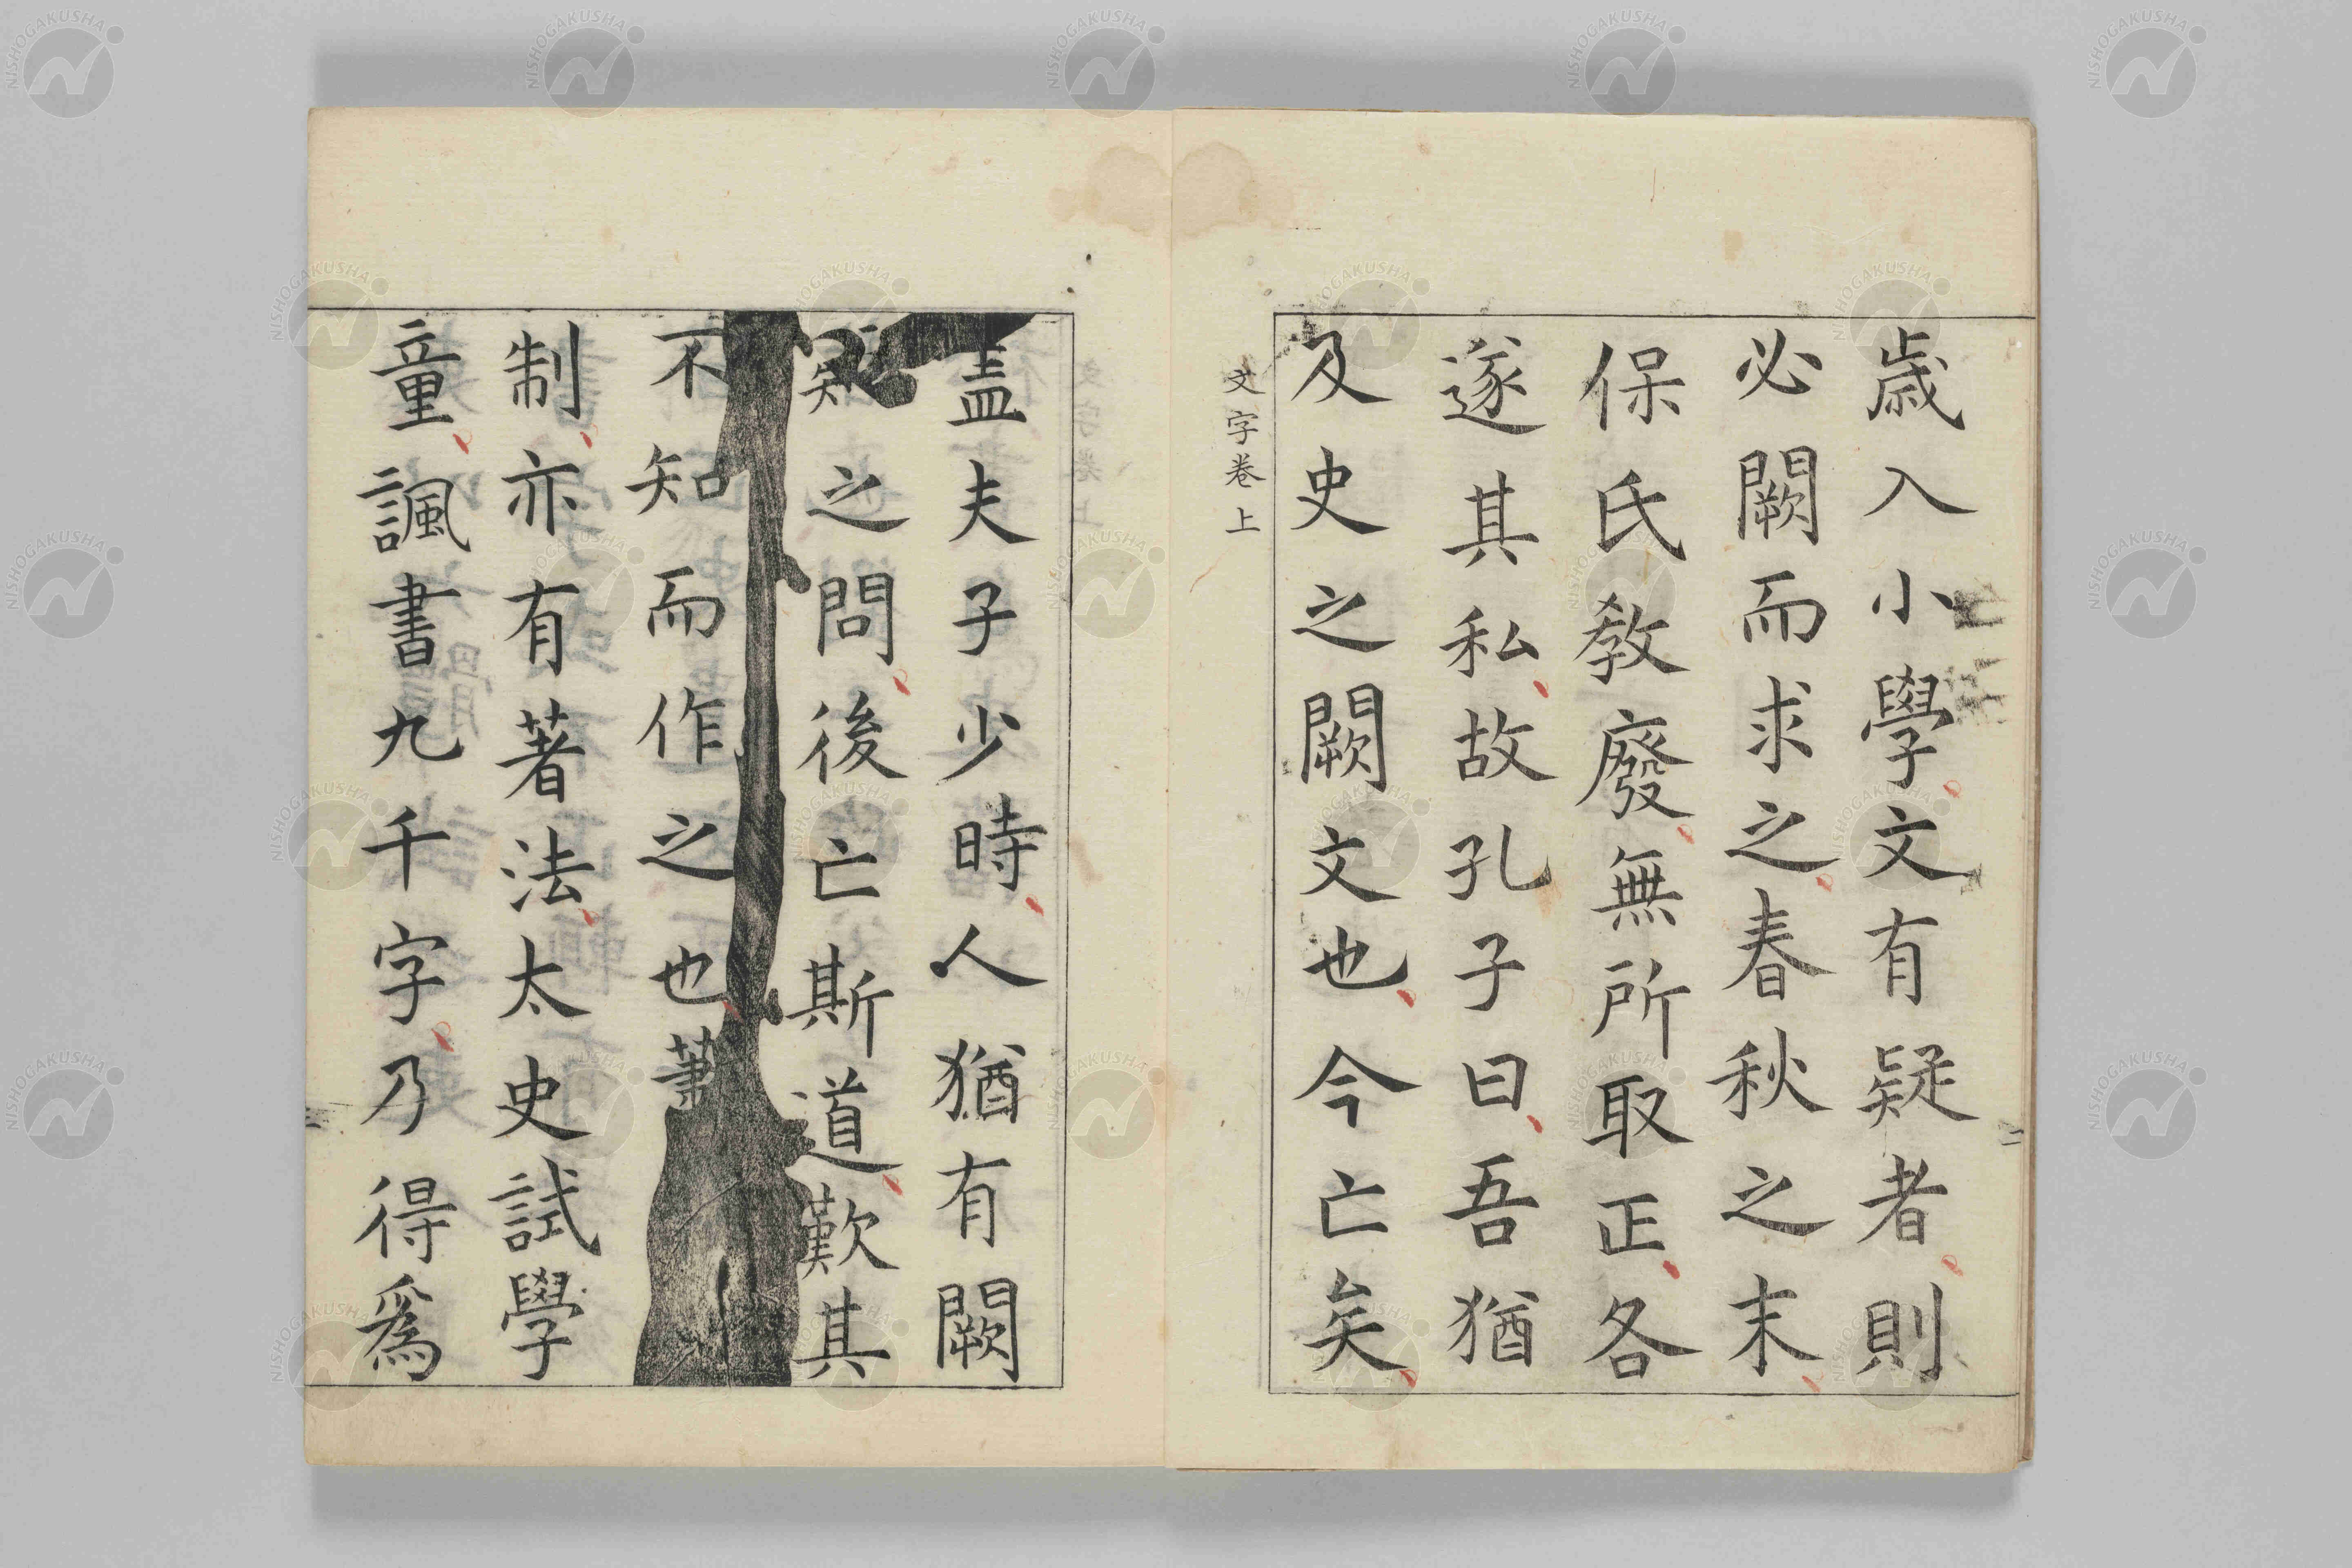 歲入小學文有疑者則
必闕而求之春秋之末
保氏敎廢無所取正各
遂其私故孔子曰吾猶
及史之闕文也今亡矣
文字卷上
盖夫子少時人猶有闕
疑之問後亡斯道歎其
不知而作之也蕭
制亦有著法太史試學
童諷書九千字乃得爲
NISHOGAKUSHA